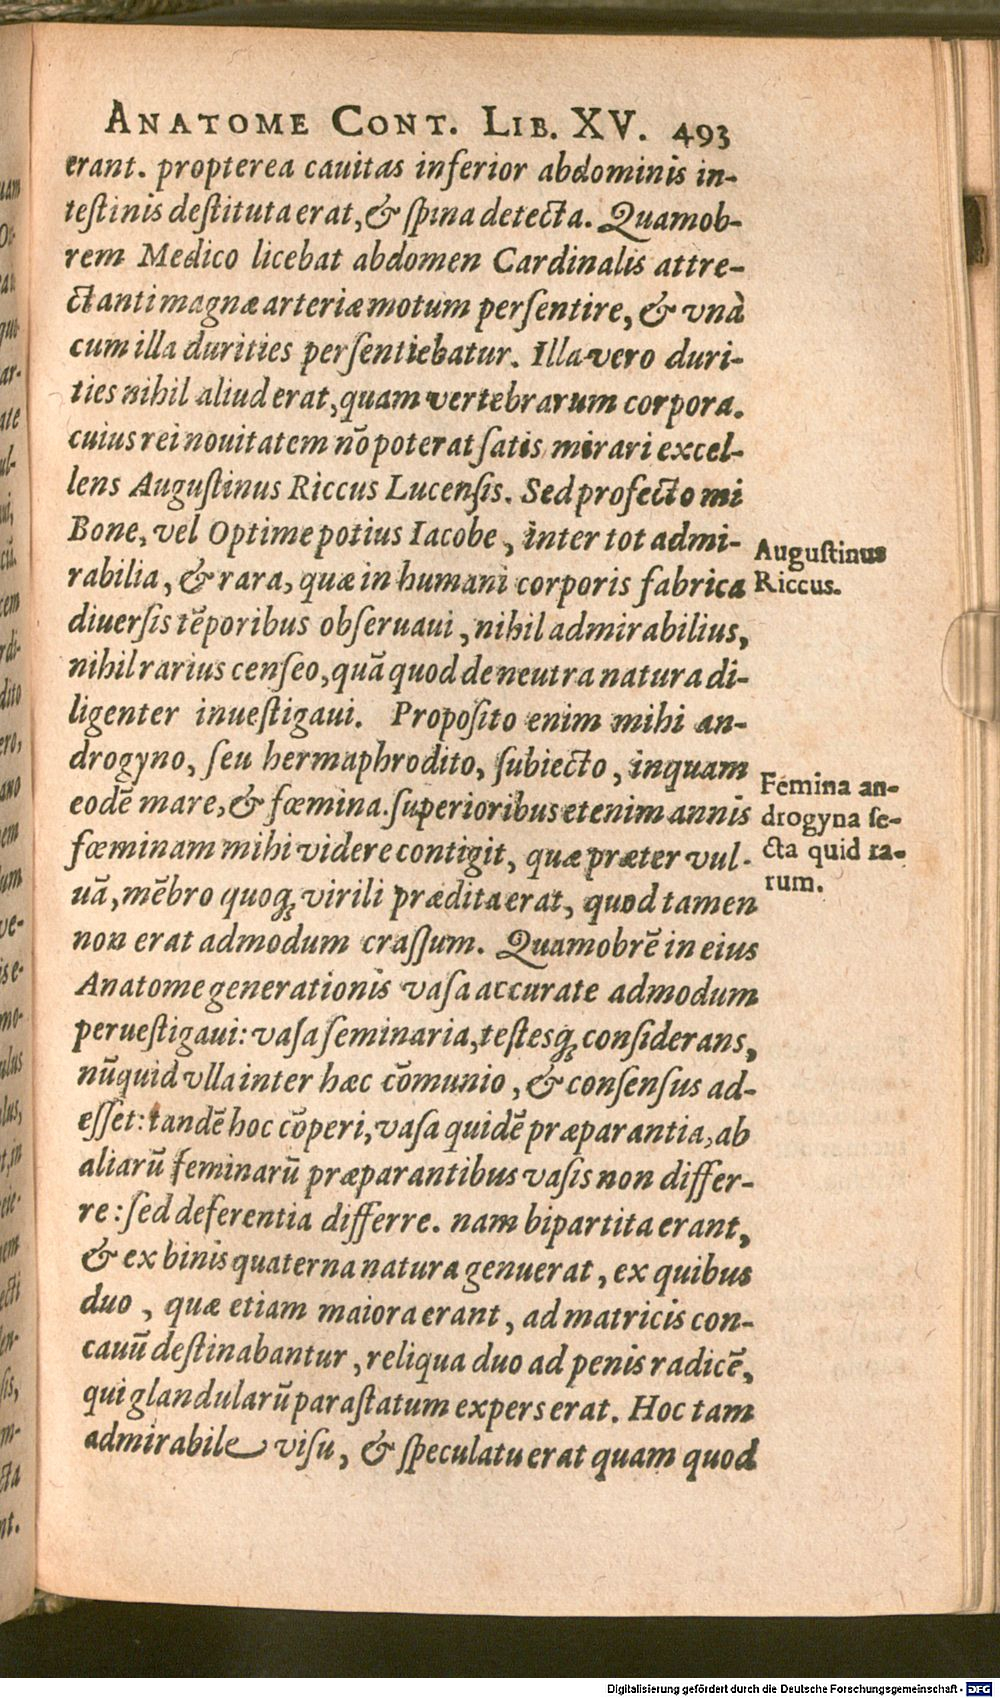 ANATOME CONT. LIB. XV. 493
erant. propterea cauitas inferior abdominis in-
teſtinis deſtituta erat, & ſpina detecta. Quamob-
rem Medico licebat abdomen Cardinalis attre-
ctanti magnæ arteriæ motum perſentire, & vnà
cum illa durities perſentiebatur. Illa vero duri-
ties nihil aliud erat, quam vertebrarum corpora.
cuius rei nouitatem nō poterat ſatis mirari excel-
lens Auguſtinus Riccus Lucenſis. Sed profecto mi
Bone, vel Optime potius Iacobe, inter tot admi-
rabilia, & rara, quæ in humani corporis fabrica
diuerſis tēporibus obſeruaui, nihil admirabilius,
nihil rarius cenſeo, quā quod de neutra natura di-
ligenter inueſtigaui. Propoſito enim mihi an-
drogyno, ſeu hermaphrodito, ſubiecto, inquam
eodē mare, & fœmina. ſuperioribus etenim annis
fœminam mihi videre contigit, quæ præter vul-
uā, mēbro quoq; virili prædita erat, quod tamen
non erat admodum craſſum. Quamobrē in eius
Anatome generationis vaſa accurate admodum
perueſtigaui: vaſa ſeminaria, teſtesq; conſiderans,
nūquid vlla inter hæc cōmunio, & conſenſus ad-
eſſet: tandē hoc cōperi, vaſa quidē præparantia, ab
aliarū feminarū præparantibus vaſis non differ-
re: ſed deferentia differre. nam bipartita erant,
& ex binis quaterna natura genuerat, ex quibus
duo, quæ etiam maiora erant, ad matricis con-
cauū deſtinabantur, reliqua duo ad penis radicē,
qui glandularū paraſtatum expers erat. Hoc tam
admirabile viſu, & ſpeculatu erat quam quod
Auguſtinus
Riccus.
Femina an-
drogyna ſe-
cta quid ra-
rum.
Digitalisierung gefördert durch die Deutsche Forschungsgemeinschaft - DFG